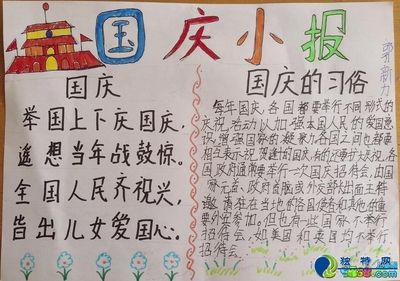 国庆小报
国庆
举国上下庆国庆,
遥想当年战鼓惊。
全国人民齐祝兴,
皆出儿女爱国心。
国庆的习俗
每年国庆,各国都要举行不同形式的
庆祝活动,以加强本国人民的爱国意
识,增强国家的凝聚力。各国之间也都要
相互表示祝贺。逢五逢十的国庆,有的还要扩大庆祝
国政府通常要举行一次国庆招待会,由国
家元首、政府首脑或外交部长出面主持
邀请驻在当地的各国使者和其他的重
要外宾参加。但也有一些国家不举行
招待会,如美国和英国均不举行
招待会。
独特网